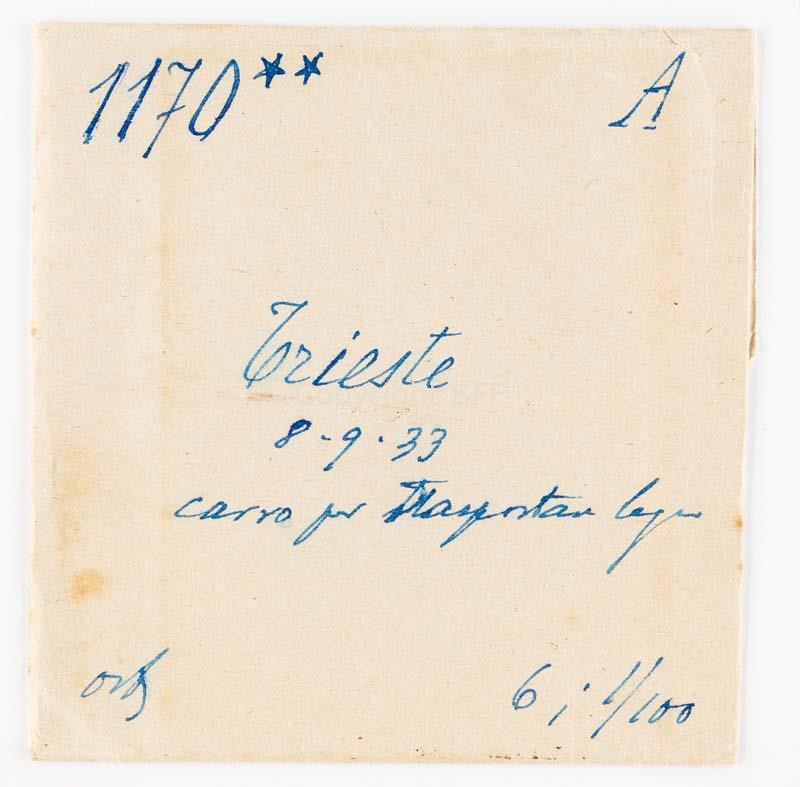 1170** A
Trieste
8-9-33
carro per trasportare legno
6; 1/100